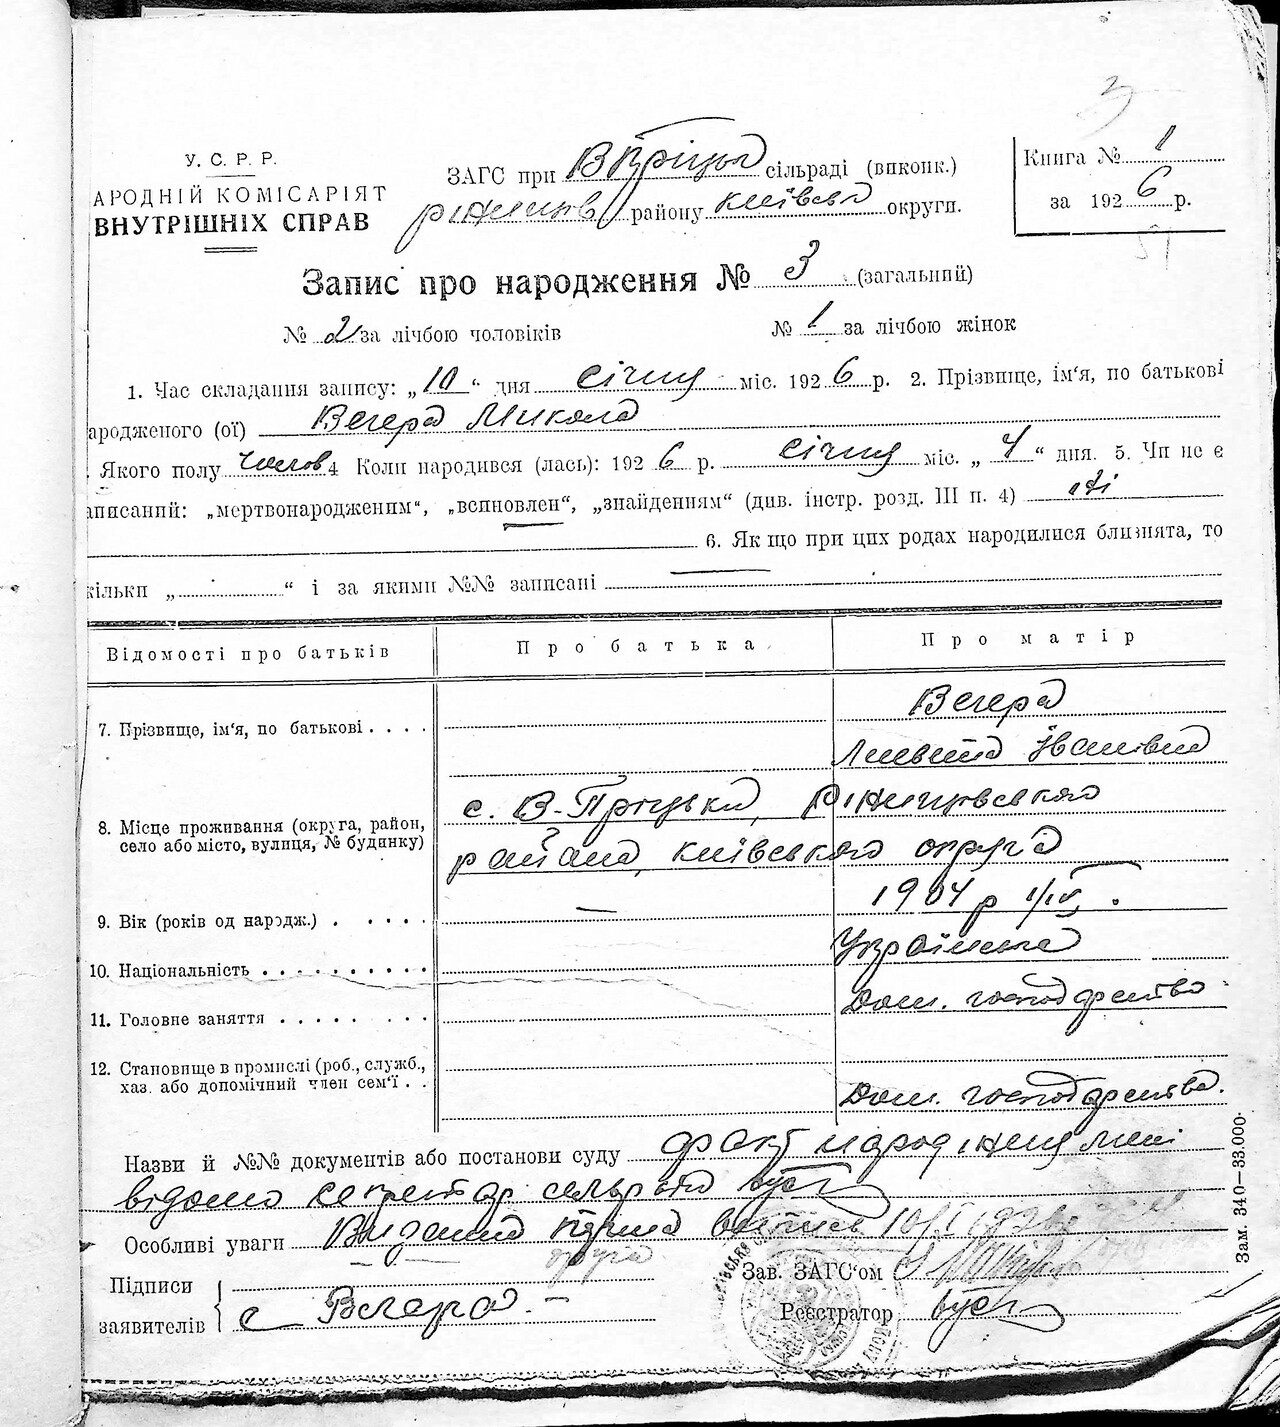 3
У. С. Р. Р.
АРОДНІЙ КОМІСАРІЯТ
ВНУТРІШНІХ СПРАВ
ЗАГС при сільраді (виконк.)
району київсько округи.
Книга № 1
за 1926 р.
51
Запис про народження № 3 (загальний)
№ 2 за лічбою чоловіків № 1 за лічбою жінок
1. Час складання запису: „10“ дня січня міс. 1926 р. 2. Прізвище, ім‘я, по батькові
ародженого (ої) Вечера Микола
. Якого полу чолов. 4 Коли народився (лась): 1926 р. січня міс. „4“ дня. 5. Чи не є
аписаний: „мертвонародженим“, „всиновлен“, „знайденням“ (див. інстр. розд. III п. 4) ні
6. Як що при цих родах народилися близнята, то
кільки „ “ і за якими №№ записані
Відомості про батьків Про батька Про матір
7. Прізвище, ім‘я, по батькові Вечера
Іванівна
8. Місце проживання (округа, район, село або місто, вулиця, № будинку) с. В-Пріцьки,
района, київського округа
9. Вік (років од народж.) — 1904 р 1/IV.
10. Національність Українська
11. Головне заняття Дом. господарство
12. Становище в промислі (роб., служб., хаз. або допомічний член сем‘ї Дом. господарство.
Назви й №№ документів або постанови суду факт народження мені
відомо секретар сельради
Особливі уваги Видатна перша випись 10/I
друга
Підписи
заявителів Вечера
Зав. ЗАГС‘ом
Реєстратор
Зам. 340—33.000.